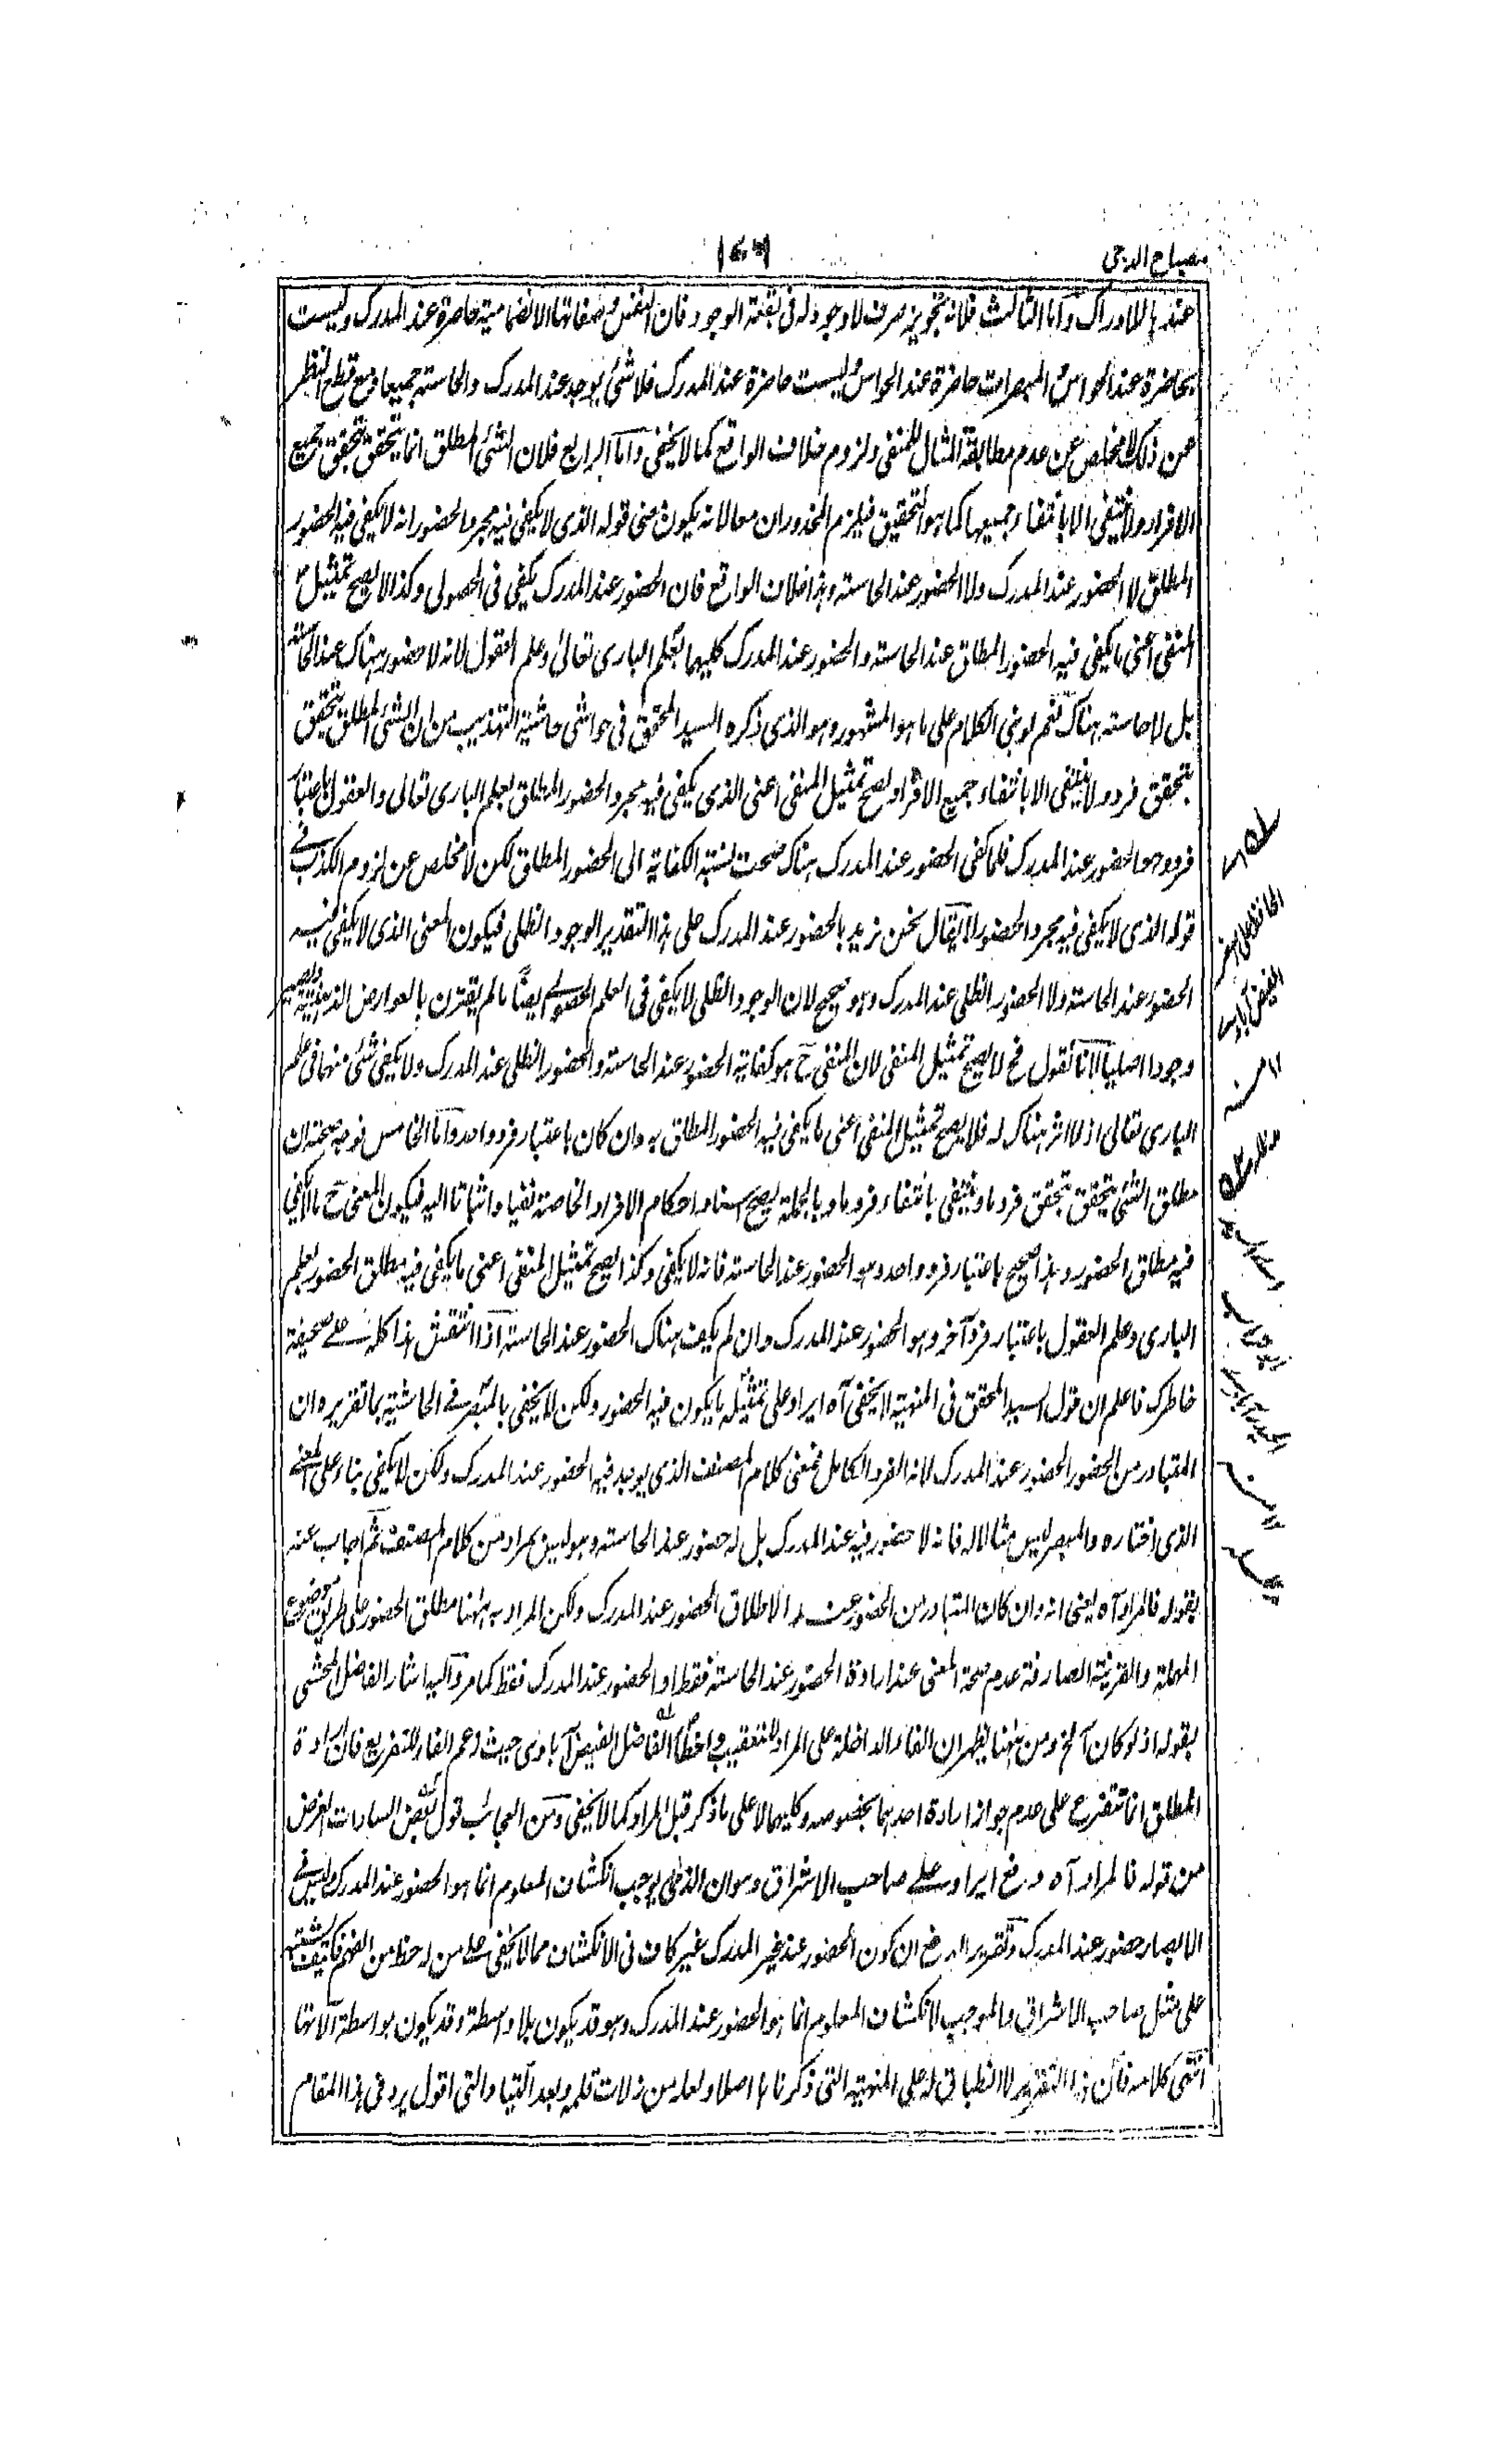 مصباح الدجى
عندها للادراك وأما الثالث فلانه تجويز صرف لا وجود له فى بقعة الوجود فان النفس وصفاتها الانضمامية حاضرة عند المدرك وليست
بحاضرة عند الحواس والمبصرات حاضرة عند الحواس وليست حاضرة عند المدرك فلا شئ يوجد عند المدرك والحاسة جميعا ومع قطع النظر
عن ذلك لا مخلص عن عدم مطابقة المثال للمنفى ولزوم خلاف الواقع كما لا يخفى وأما الرابع فلان الشئ المطلق انما يتحقق بتحقق جميع
الافراد ولا ينتفى الا بانتفاء جميعها كما هو التحقيق فيلزم المحذوران معا لانه يكون معنى قوله الذى لا يكفى فيه مجرد الحضور انه لا يكفى فيه الحضور
المطلق لا الحضور عند المدرك ولا الحضور عند الحاسة وهذا خلاف الواقع فان الحضور عند المدرك يكفى فى الحصولى وكذا لا يصح تمثيل
المنفى اعنى ما يكفى فيه الحضور المطلق عند الحاسة والحضور عند المدرك كليهما بعلم البارى تعالى وعلم العقول لانه لا حضور هناك عند الحاسة
بل لا حاسة هناك نعم لو بنى الكلام على ما هو المشهور وهو الذى ذكره السيد المحقق فى حواشى حاشية التهذيب من ان الشئ المطلق يتحقق
بتحقق فرد ولا ينتفى الا بانتفاء جميع الافراد لصح تمثيل المنفى اعنى الذى يكفى فيه مجرد الحضور المطلق بعلم البارى تعالى والعقول باعتبار
فرد وهو الحضور عند المدرك فلما كفى الحضور عند المدرك هناك صحت نسبة الكفاية الى الحضور المطلق لكن لا مخلص عن لزوم الكذب فى
قوله الذى لا يكفى فيه مجرد الحضور لا يقال نحن نريد بالحضور عند المدرك على هذا التقدير الوجود الظلى فيكون المعنى الذى لا يكفى فيه
الحضور عند الحاسة ولا الحضور الظلى عند المدرك وهو صحيح لان الوجود الظلى لا يكفى فى العلم الحصولى ايضًا ما لم يقترن بالعوارض الذهنية ويصير
وجودا اصليا لانا نقول فح لا يصح تمثيل المنفى لان المنفى ح هو كفاية الحضور عند الحاسة والحضور الظلى عند المدرك ولا يكفى شئ منهما فى علم
البارى تعالى اذ لا اثر هناك له فلا يصح تمثيل المنفى اعنى ما يكفى فيه الحضور المطلق به وان كان باعتبار فرد واحد وأما الخامس فوجه صحته ان
مطلق الشئ يتحقق بتحقق فرد ما وينتفى بانتفاء فرد ما وبالجملة يصح اسناد احكام الافراد الخاصة نفيا واثباتا اليه فيكون المعنى ح ما لا يكفى
فيه مطلق الحضور وهذا صحيح باعتبار فرد واحد وهو الحضور عند الحاسة فانه لا يكفى وكذا يصح تمثيل المنفى اعنى ما يكفى فيه مطلق الحضور بعلم
البارى وعلم العقول باعتبار فرد آخر وهو الحضور عند المدرك وان لم يكف هناك الحضور عند الحاسة اذا انتقش هذا كله على صحيفة
خاطرك فاعلم ان قول السيد المحقق فى المنهية لا يخفى آه ايراد على تمثيله ما يكون فيه الحضور ولكن لا يخفى بالمبصر فى الحاشية بما تقريره ان
المتبادر من الحضور الحضور عند المدرك لانه الفرد الكامل فمعنى كلام المصنف الذى يوجد فيه الحضور عند المدرك ولكن لا يكفى بناء على المعنى
الذى اختاره والمبصر ليس مثالا له فانه لا حضور فيه عند المدرك بل له حضور عند الحاسة وهو ليس بمراد من كلام المصنف ثم اجاب عنه
بقوله فالمراد آه يعنى انه وان كان المتبادر من الحضور عند الاطلاق الحضور عند المدرك ولكن المراد به ههنا مطلق الحضور على طريق موضوع
المهملة والقرينة الصارفة عدم صحة المعنى عند ارادة الحضور عند الحاسة فقط او الحضور عند المدرك فقط كما مر واليه اشار الفاضل المحشى
بقوله اذ لو كان آلخ ومن ههنا يظهر ان الفاء الداخلة على المراد للتعقيب واخطأ الفاضل الفيض آبادى حيث زعم الفاء للتفريع فان ارادة
المطلق انما تتفرع على عدم جواز ارادة احدهما بخصوصه وكليهما لا على ما ذكر قبل المراد كما لا يخفى ومن العجائب قول بعض السادات الغرض
من قوله فالمراد آه دفع ايراد على صاحب الاشراق وهو ان الذى يوجب انكشاف المعلوم انما هو الحضور عند المدرك وليس فى
الابصار حضور عند المدرك وتقرير الدفع ان كون الحضور عند غير المدرك غير كاف فى الانكشاف مما لا يخفى على من له حظ من الفهم فكيف يشتبه
على مثل صاحب الاشراق والموجب لانكشاف المعلوم انما هو الحضور عند المدرك وهو قد يكون بلا واسطة وقد يكون بواسطة آلاتها
انتهى كلامه فان هذا التقرير لا انطباق له على المنهية التى ذكرناها اصلا ولعله من زلات قلمه وبعد اللتيا والتى اقول يرد فى هذا المقام
الفيض آبادى
١٢ منه